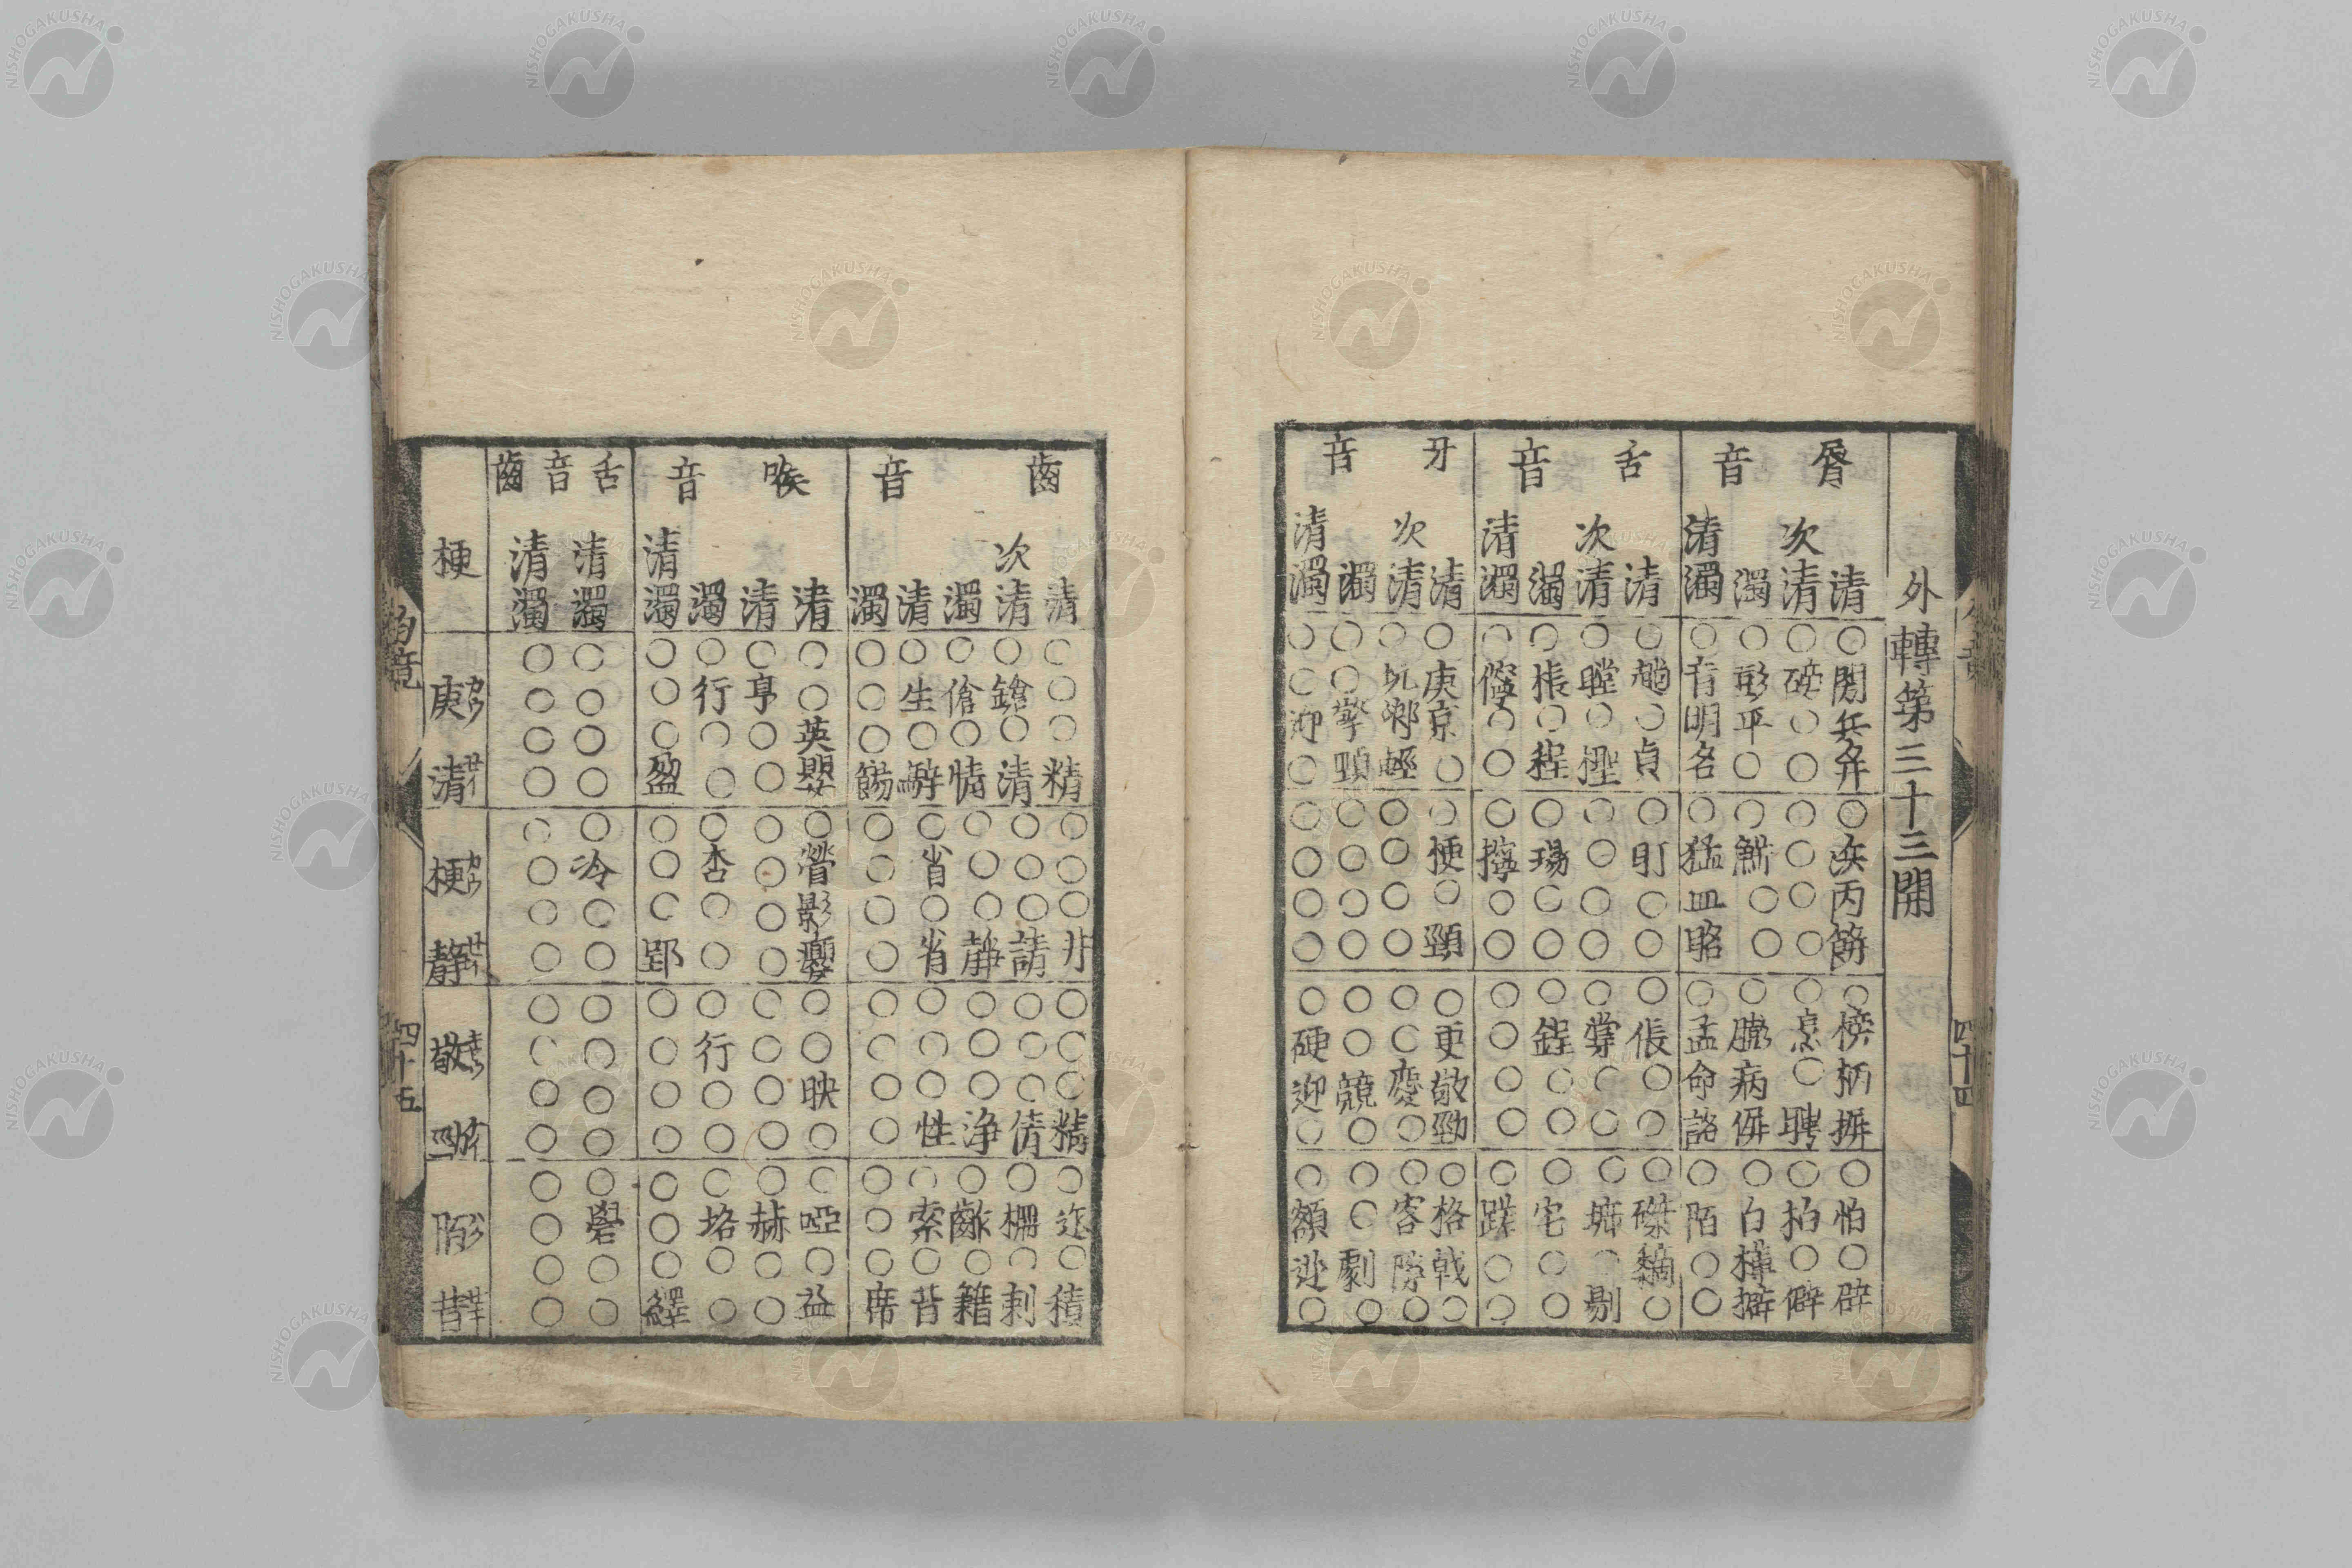 外轉第三十三開
脣音
舌音
牙音
清
次清
濁
清濁
清
次清
濁
清濁
清
次清
濁
清濁
○閍兵并○浜丙餅○榜柄摒○怕○辟
○磅○○○○○○○亨○聘○拍○僻
○彭平○○鮩○○○膨病偋○白欂擗
○盲明名○猛皿眳○孟命詺○陌○○
○趟○貞○盯○○○倀○○○磔䵂○
○瞠○檉○○○○○牚○○○㙷○剔
○棖○程○瑒○○○鋥○○○宅○○
○儜○○○擰○○○○○○○蹃○○
○庚京○○梗○頸○更敬勁○格戟○
○坑卿輕○○○○○○慶○○客隙○
○○擎頸○○○○○○競○○○劇○
○○迎○○○○○○硬迎○○額逆○
四十四
齒音
喉音
舌音齒
清
次清
濁
清
濁
清
清
濁
清濁
清濁
清濁
梗
○○○精○○○井○○○精○迮○積
○鎗○清○○○請○○○倩○柵○刺
○傖○情○○○静○○○浄○齚○籍
○生○○省○省○○○性○索○昔
○○○餳○○○○○○○○○○○席
○○英嬰○㽦影癭○○映○○啞○益
○亨○○○○○○○○○○○赫○○
○行○○○杏○○○行○○○垎○○
○○○盈○○○郢○○○○○○○繹
○○○○○冷○○○○○○○礐○○
○○○○○○○○○○○○○○○○
庚清梗静敬陌昔
韵竟
四十五
NISHOGAKUSHA